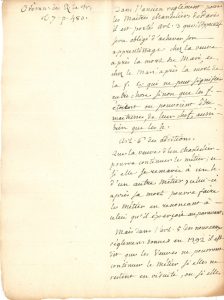 t. 7. p. 480.
Dans l'ancien reglement pour
les Maitres chandeliers
est porté art. 3 que
sera obligé d'achever son
apprentissage chez la veuve
après la mort du Mari, et
chez le Mari après la mort de
la f. ce que ne peut signifier
autre chose sinon que les f.
etoient ou pouvoient être
de leur chef aussi
bien que les h.
art. 6e des
Que la veuve d'un chandelier
pourra continuer le métier, et
si elle se remarie à un h.
d'un autre métier celui ci
après sa mort pourra faire
le métier en renonçant à
celui qu'il exerçoit auparavant.
Mais dans l'art. 5 du nouveau
reglement donné en 1742 il est
dit que les Veuves ne pourront
continuer le métier si elles ne
restent en viduité, ou si elle